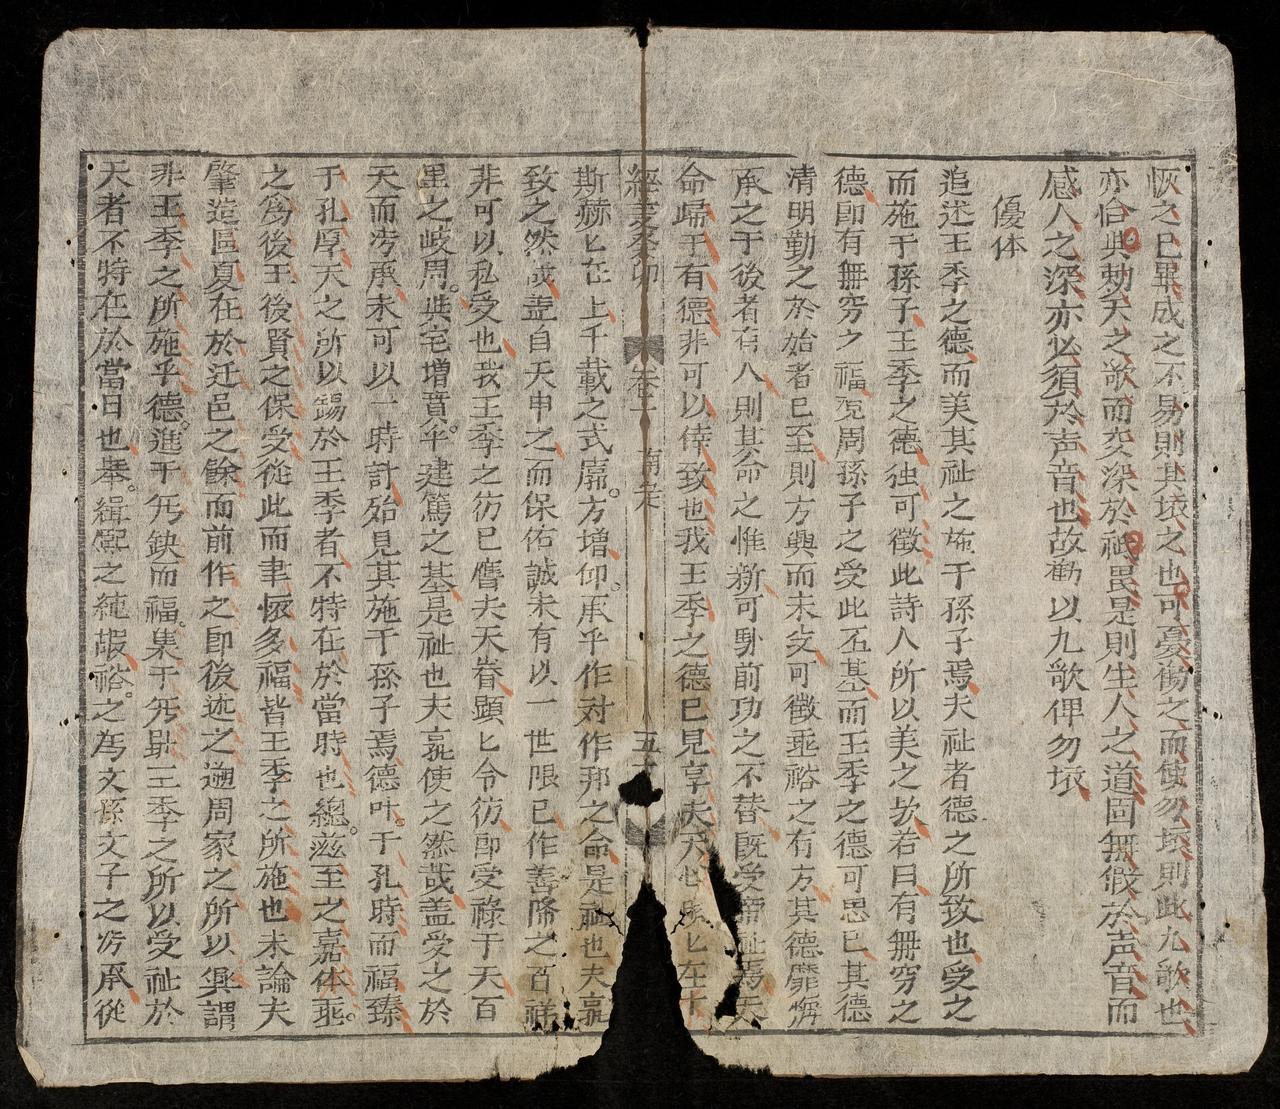 恢之已畢成之不易則其壞之也可憂勸之而使勿壞則此九歌也
亦恰與勅天之歌而交深於祇畏是則生人之道固無假於声音而
感人之深亦必須於声音也故勸以九歌俾勿壞
優体
追述王季之德而美其祉之施于孫子焉夫祉者德之所致也受之
而施于孫子王季之德独可徵此詩人所以美之欤若曰有無窮之
德即有無窮之福現周孫子之受此丕基而王季之德可思已其德
清明勤之於始者已至則方興而未艾可徵垂裕之有方其德靡悔
承之于後者有人則其命之惟新可騐前功之不替既受帝祉焉天
命歸于有德非可以倖致也我王季之德已見享夫天心矣在下
經義癸卯 卷十 南定 五十
斯赫匕在上千載之式廓。方增仰。承乎作対作邦之命是祉也夫豈
致之然或盖自天申之而保佑誠未有以一世限已作善降之百祥
非可以私受也我王季之彷已膺夫天眷顕匕令彷即受祿于天百
里之岐周。與宅增音平。建篤之基是祉也天豈使之然哉盖受之於
天而済承未可以一時計始見其施于孫子焉德叶。于孔時而福臻
于孔厚天之所以錫於王季者不特在於當時也總。滋至之嘉体垂。
之為後王後賢之保受從此而聿懷多福皆王季之所施也未論夫
肇造區夏在於迁邑之餘而前作之即後述之遡周家之所以興謂
非王季之所施乎德。進于无缺而福。集于无疆王季之所以受祉於
天者不特在於當日也奉。緝熙之純嘏裕。之為文孫文子之済承從